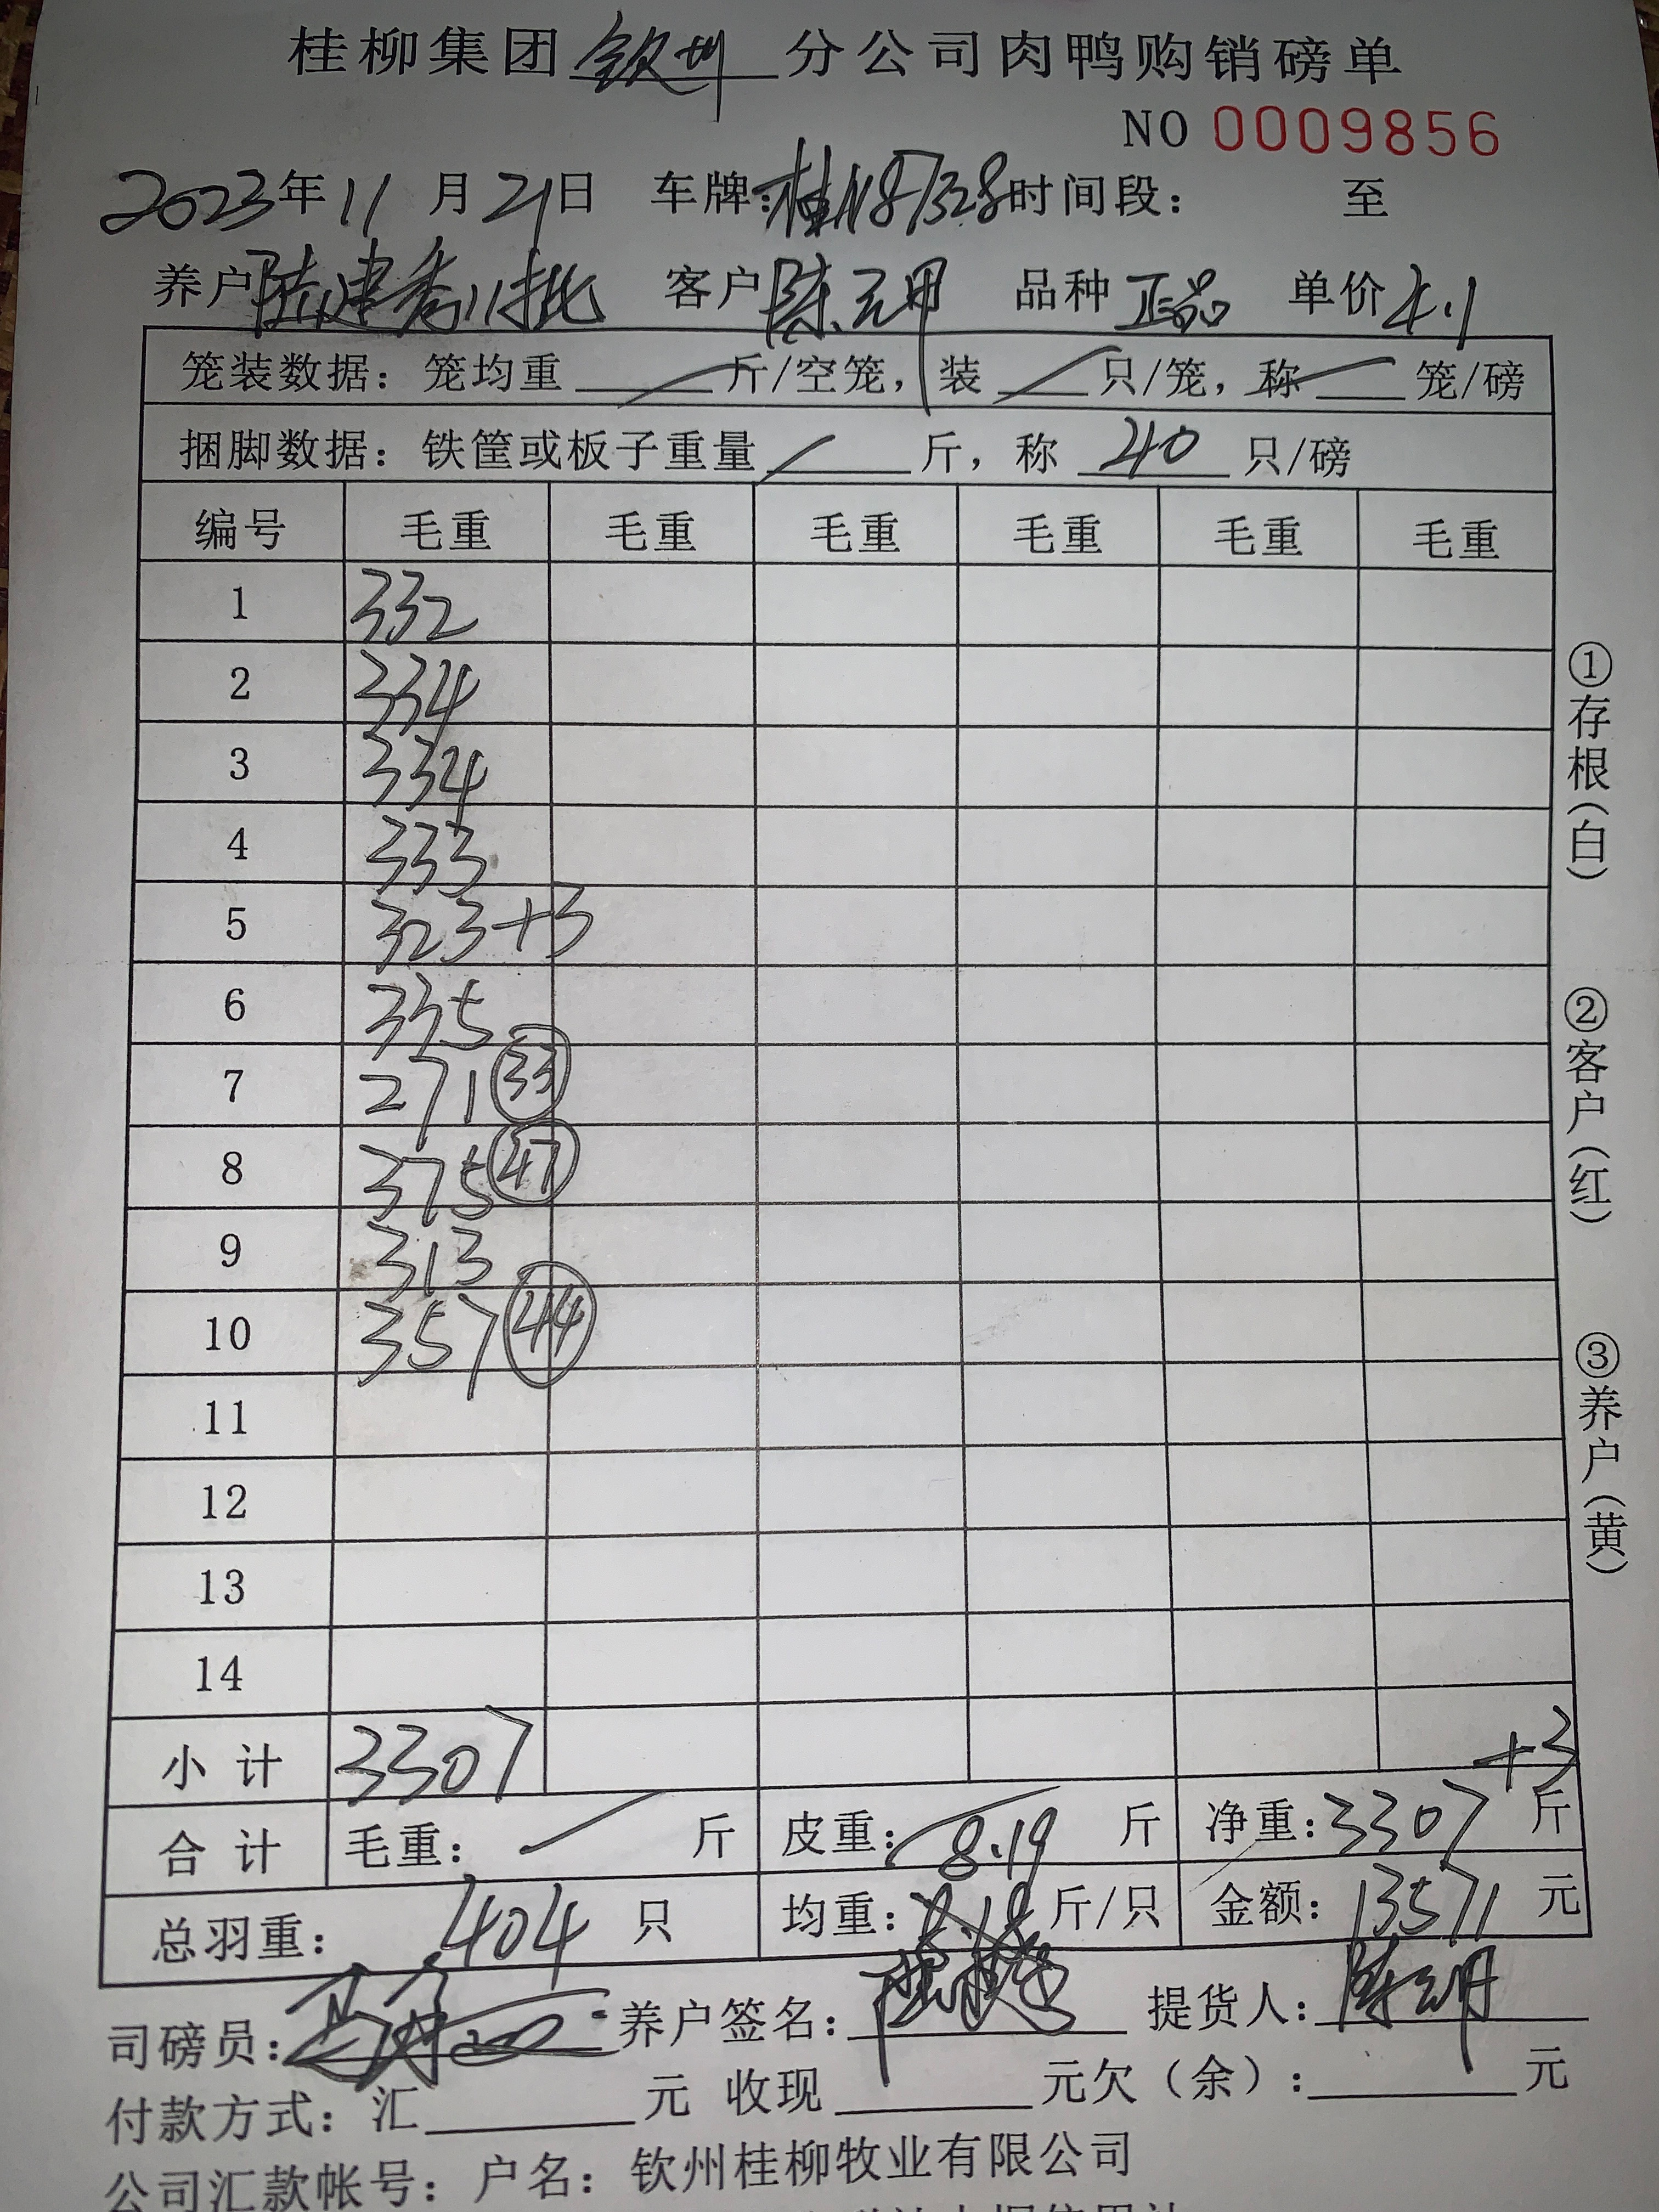 桂柳集团钦州分公司肉鸭购销磅单
NO 0009856
2023年11月21日 车牌:桂N87328时间段: 至
养户陆建秀11批 客户陈云明 品种正品 单价4.1
笼装数据: 笼均重 斤/空笼, 装 只/笼, 称 笼/磅
捆脚数据: 铁筐或板子重量 斤, 称 40 只/磅
编号 毛重 毛重 毛重 毛重 毛重 毛重
1 332
2 334
3 334
4 333
5 323+3
6 335
7 271 33
8 375 47
9 313
10 357 44
11
12
13
14
小计 3307 +3
合计 毛重: 斤 皮重: 8.19 斤 净重:3307 斤
总羽重: 404 只 均重: 斤/只 金额: 13571 元
司磅员: 养户签名: 提货人: 陈云明
付款方式: 汇 元 收现 元欠(余): 元
公司汇款帐号: 户名: 钦州桂柳牧业有限公司
①存根(白)
②客户(红)
③养户(黄)